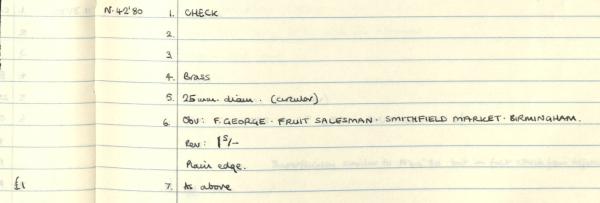 N.42'80 1. CHECK
2.
3
4. Brass
5. 25mm. diam. (circular)
6. Obv: F. GEORGE · FRUIT SALESMAN · SMITHFIELD MARKET · BIRMINGHAM.
Rev: 1S/-
Plain edge.
£1 7. As above